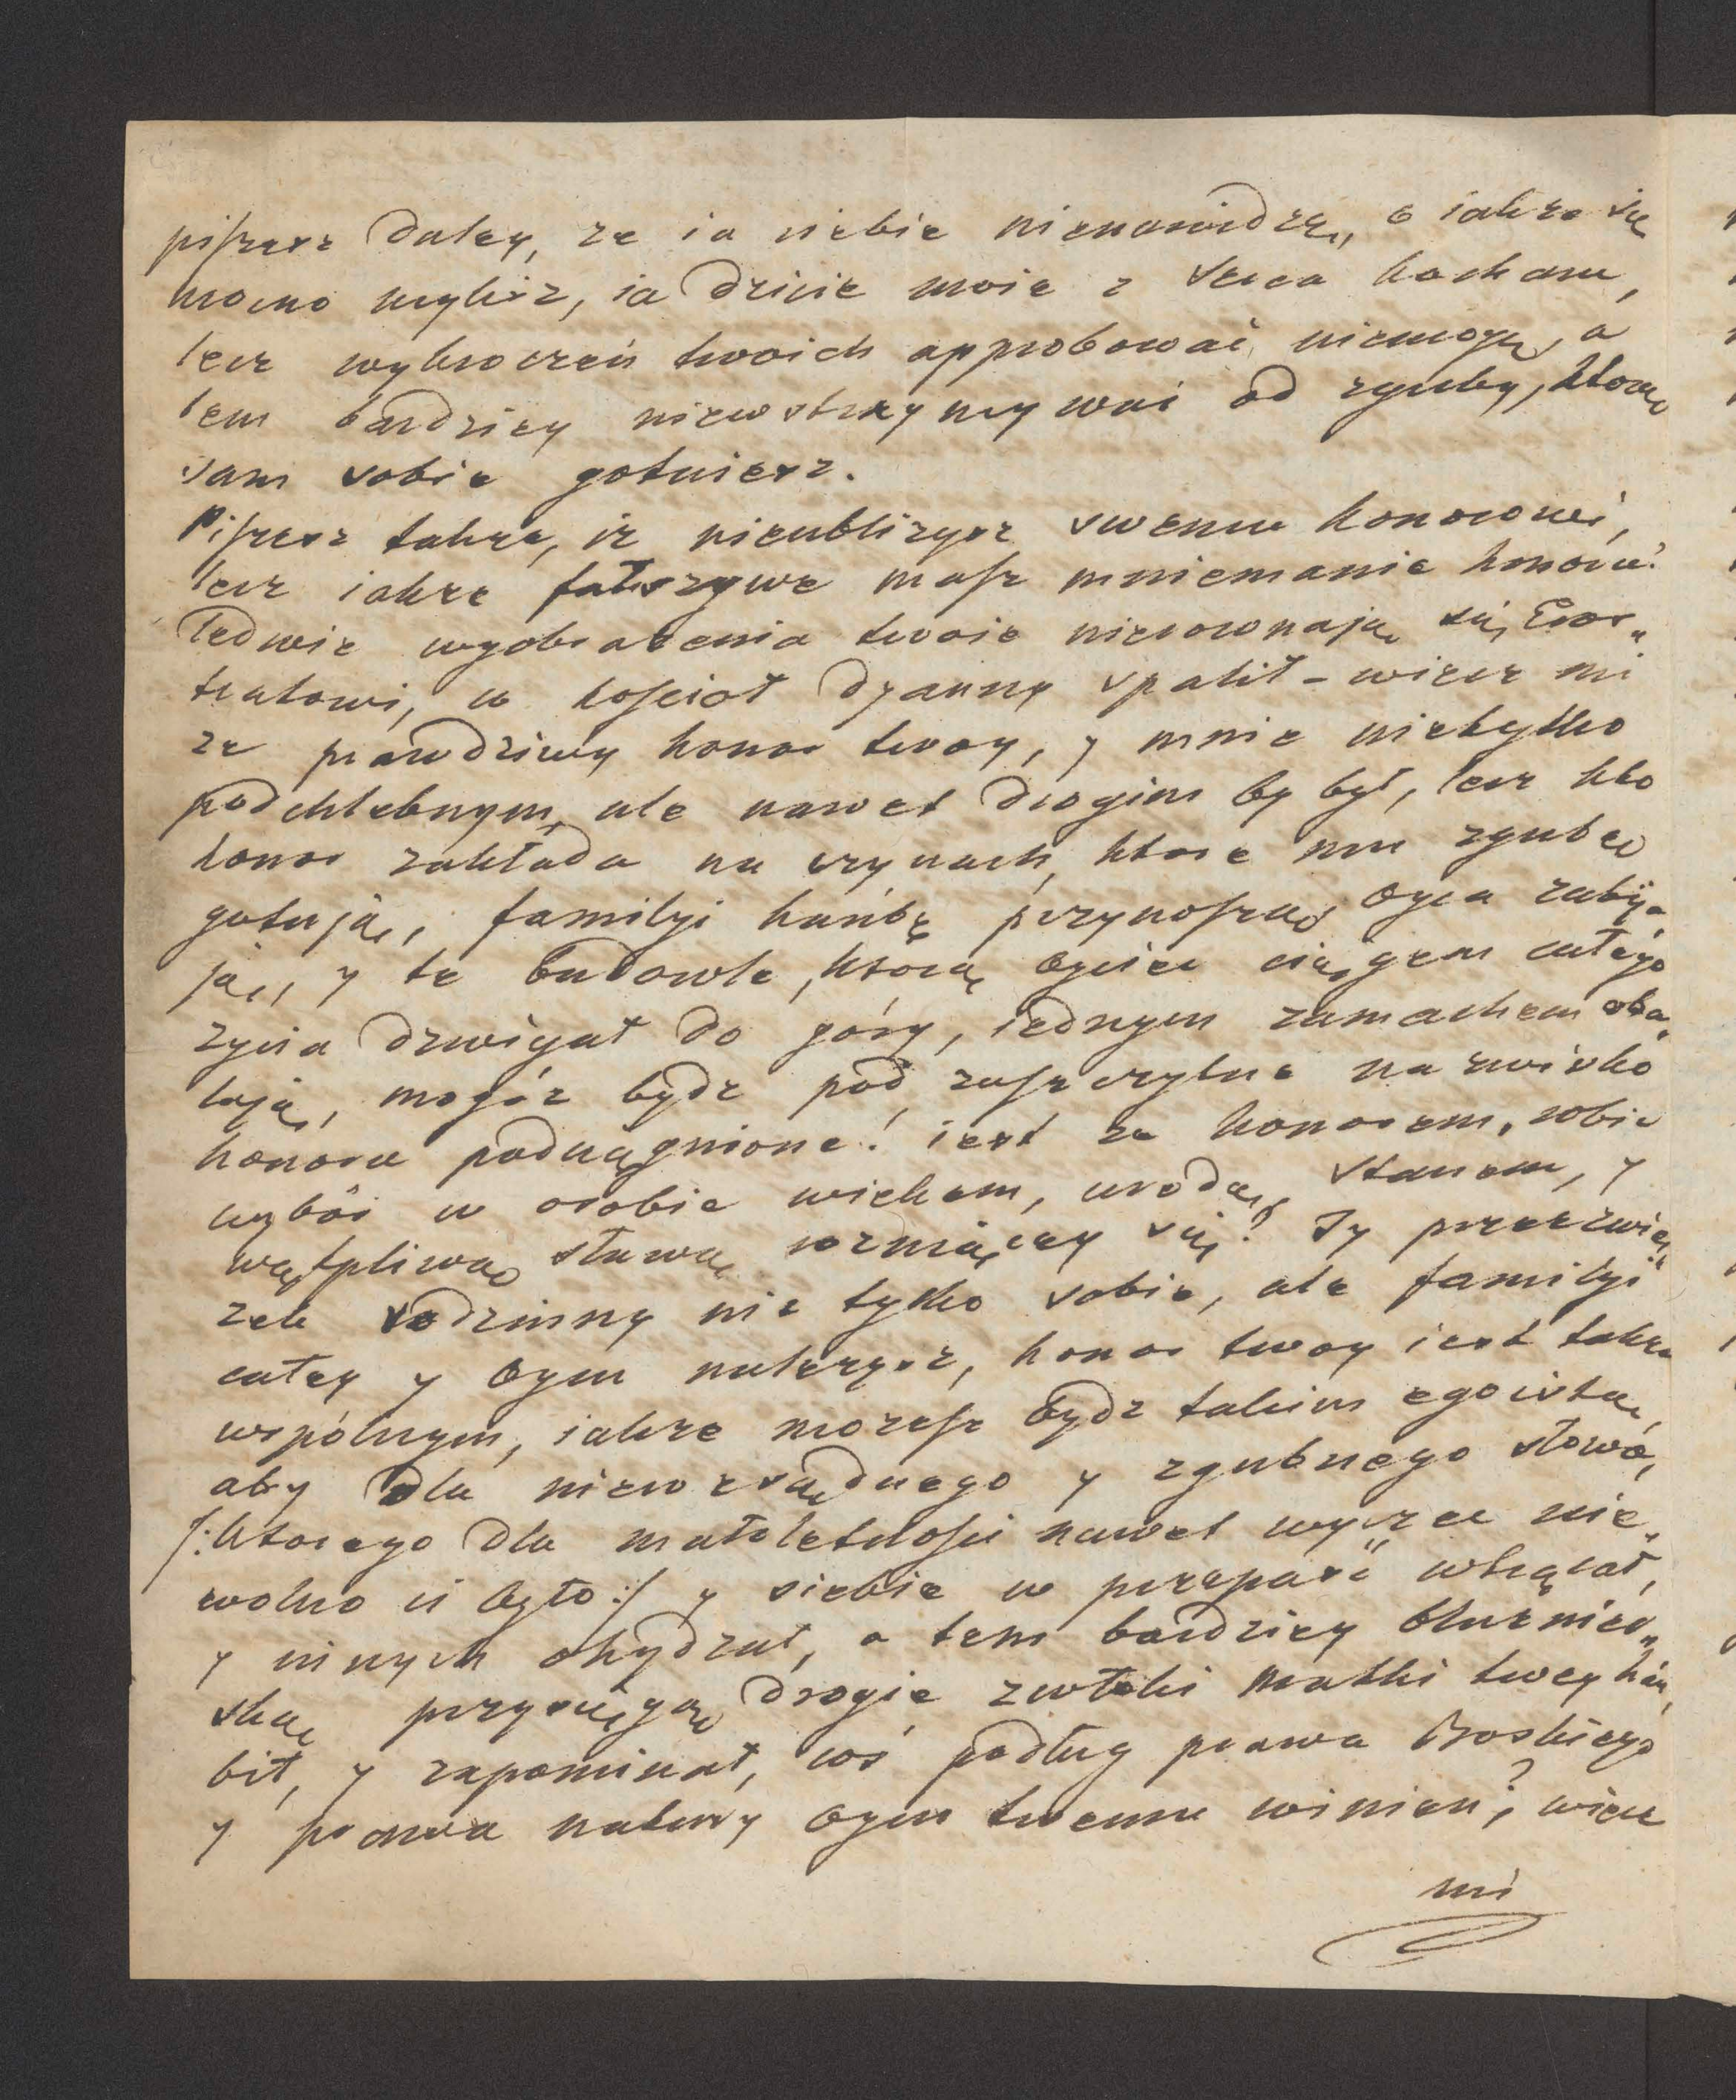 piszesz daley, ze ia ciebie nienawidzę, o iakze się
mocno mylisz, ia dziecie moie z serca kocham,
lecz wykroczeń twoich approbować niemogę, a
tem bardziey niewstrzymywać od zguby, ktorą
sam sobie gotuiesz.
Piszesz takze, iz nieubliżysz swemu honorowi,
lecz iakze fałszywe masz mniemanie honoru!
Ledwie wyobrażenia twoie nierownają się, Eros„
tratowi, co kościoł Dyanny spalił – wierz mi
ze prawdziwy honor twoy, y mnie nietylko
podchlebnym, ale nawet drogim by był, lecz kto
honor zakłada na czynach, ktore mu zgubę
gotują, familyi hańbę przynoszą, oyca zabija„
ją, y te budowle, ktorą oyciec ciągiem całego
zycia dzwigał do góry, iednym zamachem oba„
lają, mogóz bydz pod zaszczytne nazwisko
honoru podciągnione! iest ze honorem, zobic
wybór w osobie wiekem, urodą, stanem, y
wątpliwą sławą rozniącey się? Ty przez zwią„
zek rodzinny nie tylko sobie, ale familyi
całey y oycu nalezysz, honor twoy iest takze
wspólnym, iakze mozesz bydz takim egoistą,
aby dla niewczesnego y zgubnego słowa,
/:ktorego dla małoletności nawet wyrzec nie„
wolno ci było:/ y siebie w przepaść wtrącał,
y innych ohydzał, a tem bardziey bluźnier„
ską przysięgą drogie zwłoki Matki twey hań„
bił, y zapominał, coś podług prawa Boskiego
y prawa natury oycu twemu winien? wierz
mi